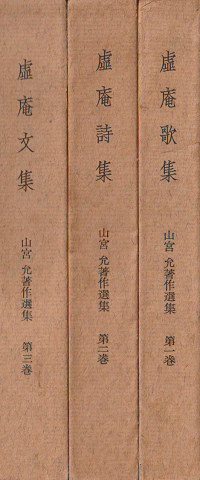 虛庵歌集
山宮允著作選集 第一巻
虛庵詩集
山宮允著作選集 第二巻
虛庵文集
山宮允著作選集 第三巻